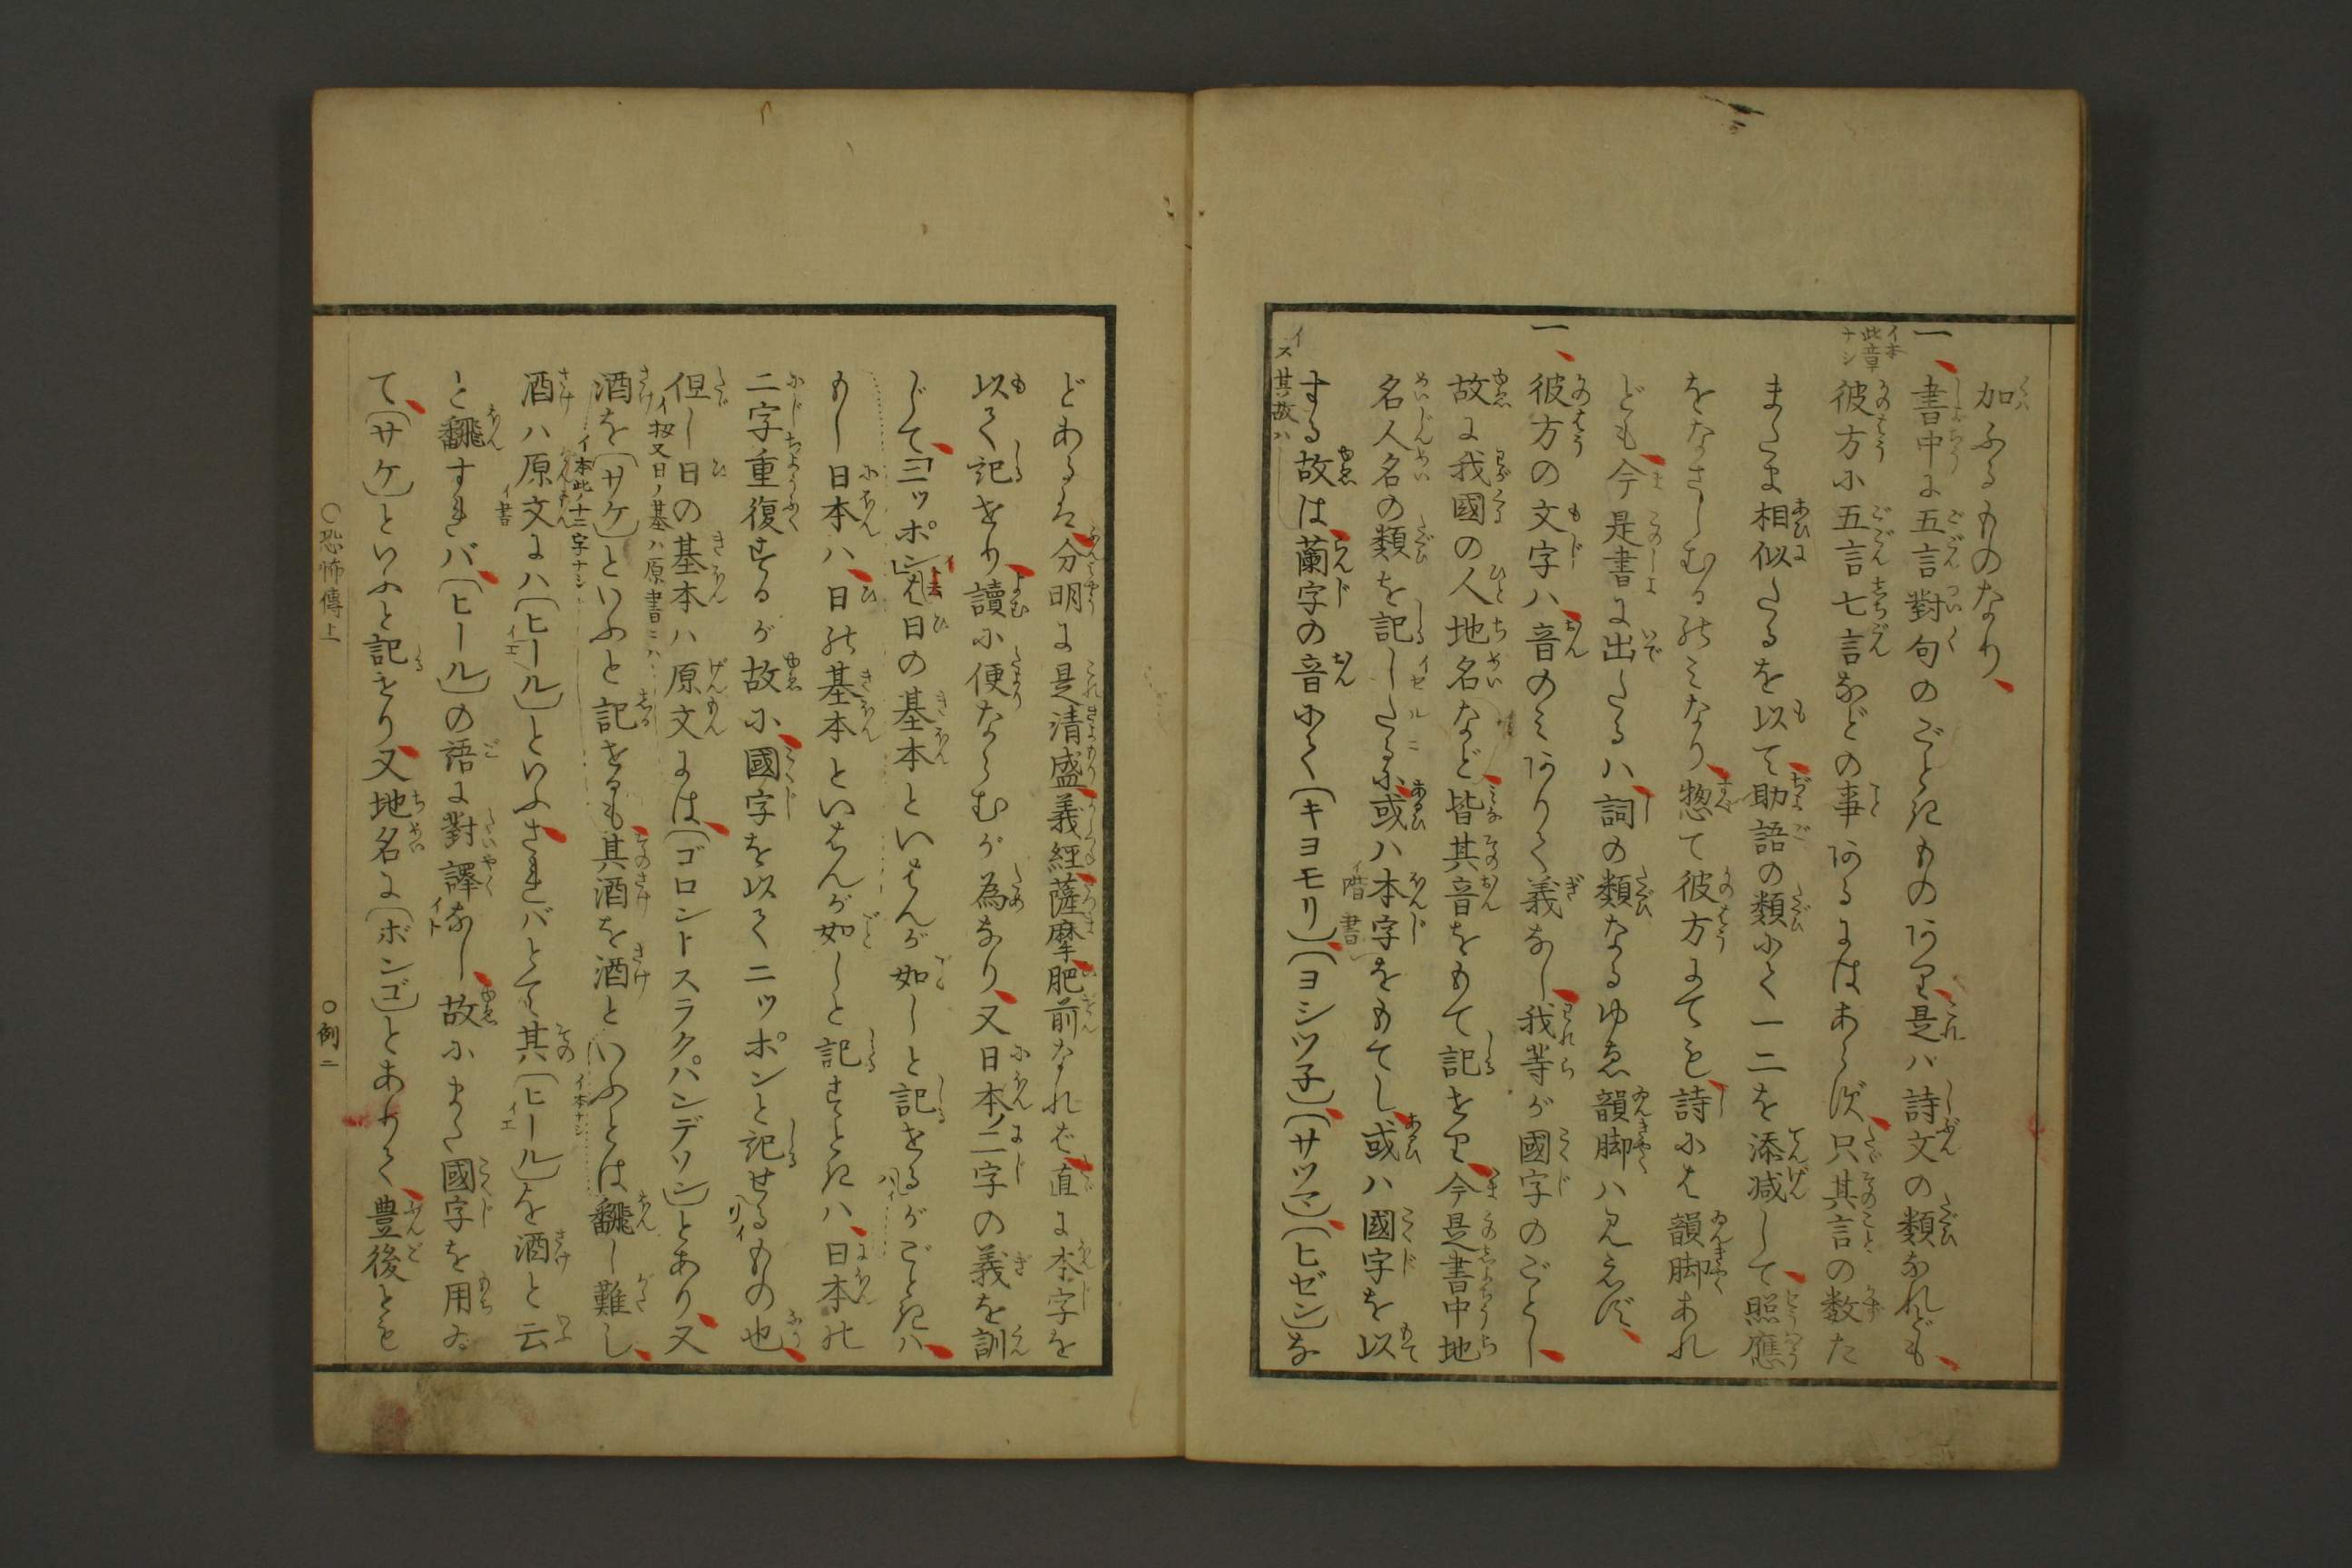 加ふるものなり、
一、書中に五言對句のごときものあり、是ハ詩文の類なれども、
イ本此章ナシ
彼方に五言七言などの事あるにはあらず、只其言の数た
またま相似たるを以て、助語の類にて一二を添减して、照應
をなさしむるのミなり、惣て彼方にても、詩にハ韻脚あれ
ども、今是書に出たるハ、詞の類なるゆゑ韻脚ハ見えず、
一、彼方の文字ハ、音のミありて義なし、我等が國字のごとし、
故に我國の人地名など、皆其音をもて記せり、今是書中地
名人名の類を記したるに、或ハ本字をもてし、或ハ國字を以
イセルニ
イ階書
する故は、蘭字の音にて〔キヨモリ〕、〔ヨシツ子〕、〔サツマ〕、〔ヒゼン〕な
イス其故ハ
どあるは、分明に是清盛、義經、薩摩、肥前なれば、直に本字を
以て記せり、讀に便ならむが為なり、又日本ノ二字の義を訓
じて、〔ニッポン〕は日の基本といはんが如しと記せるがごときハ、
もし日本ハ、日の基本といはんが如しと記すときハ、日本の
二字重復するが故に、國字を以てニッポンと記せるもの也、
リイ
但し日の基本ハ原文には、〔ゴロントスラクハンデソン〕とあり、又
イ扨又日ノ基ハ原書ニハ
酒を〔サケ〕といふと記せるも、其酒を酒といふとは飜し難し、
イ本此ノ十二字ナシ
イ本ナシ
酒ハ原文にハ〔ヒール〕といふ、されバとて其〔ヒール〕を酒と云
イ書
イエ
イエ
と飜すれバ、〔ヒール〕の語に對譯なし、故にまた國字を用ゐ
イト
て、〔サケ〕といふと記せり、又地名に〔ボンゴ〕とありて、豊後とも
〇恐怖傳上
〇例二